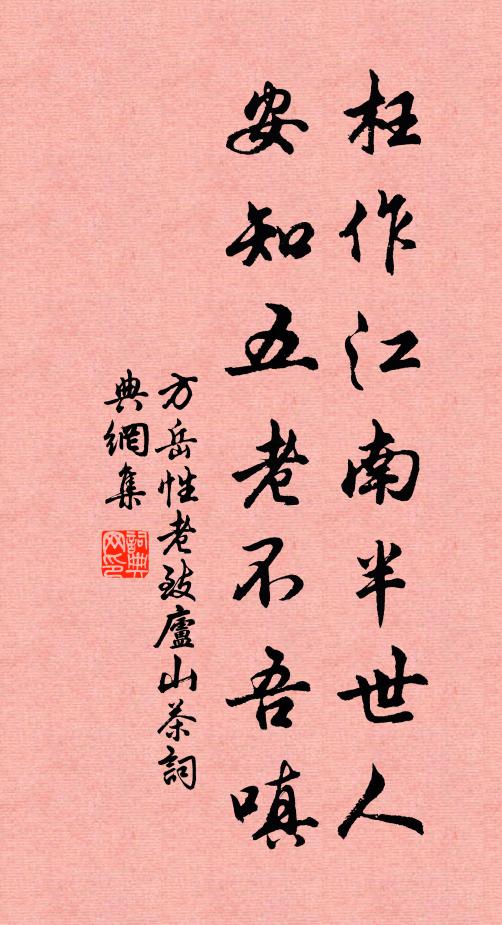 枉作江南半世人
安知五老不吾嗔
方岳性老致廬山茶詞
典網集
詞典网印